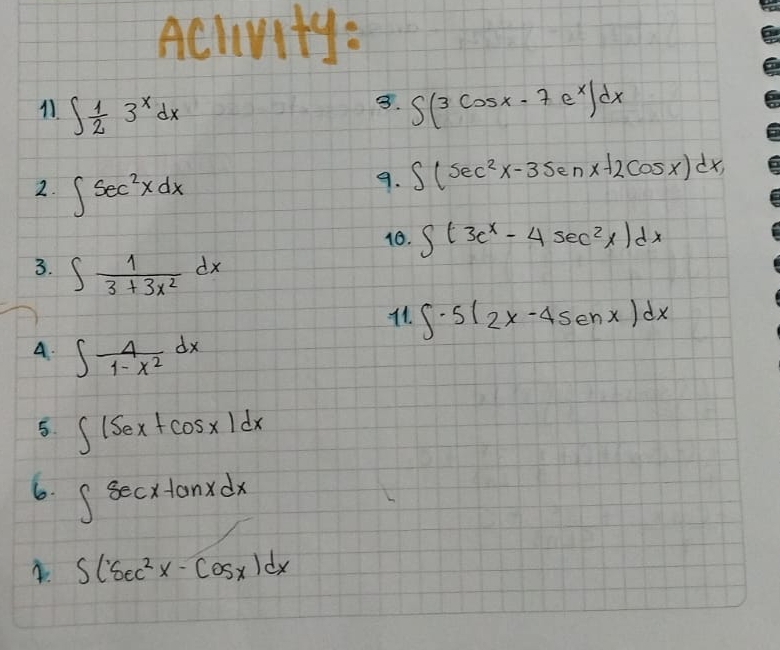 Activity:
1). ∫ 1/2 3^x dx
2. ∫ Sec²x dx
3. ∫ 1/(3+3x²) dx
4. ∫ 4/(1-x²) dx
5. ∫ (5ex+cosx)dx
6. ∫ Secx tanxdx
7. ∫(Sec²x-Cosx)dx
8. ∫(3 Cosx-7e^x)dx
9. ∫(Sec²x-3Senx+2Cosx)dx,
10. ∫(3e^x-4sec²x)dx
11. ∫-5(2x-4senx)dx